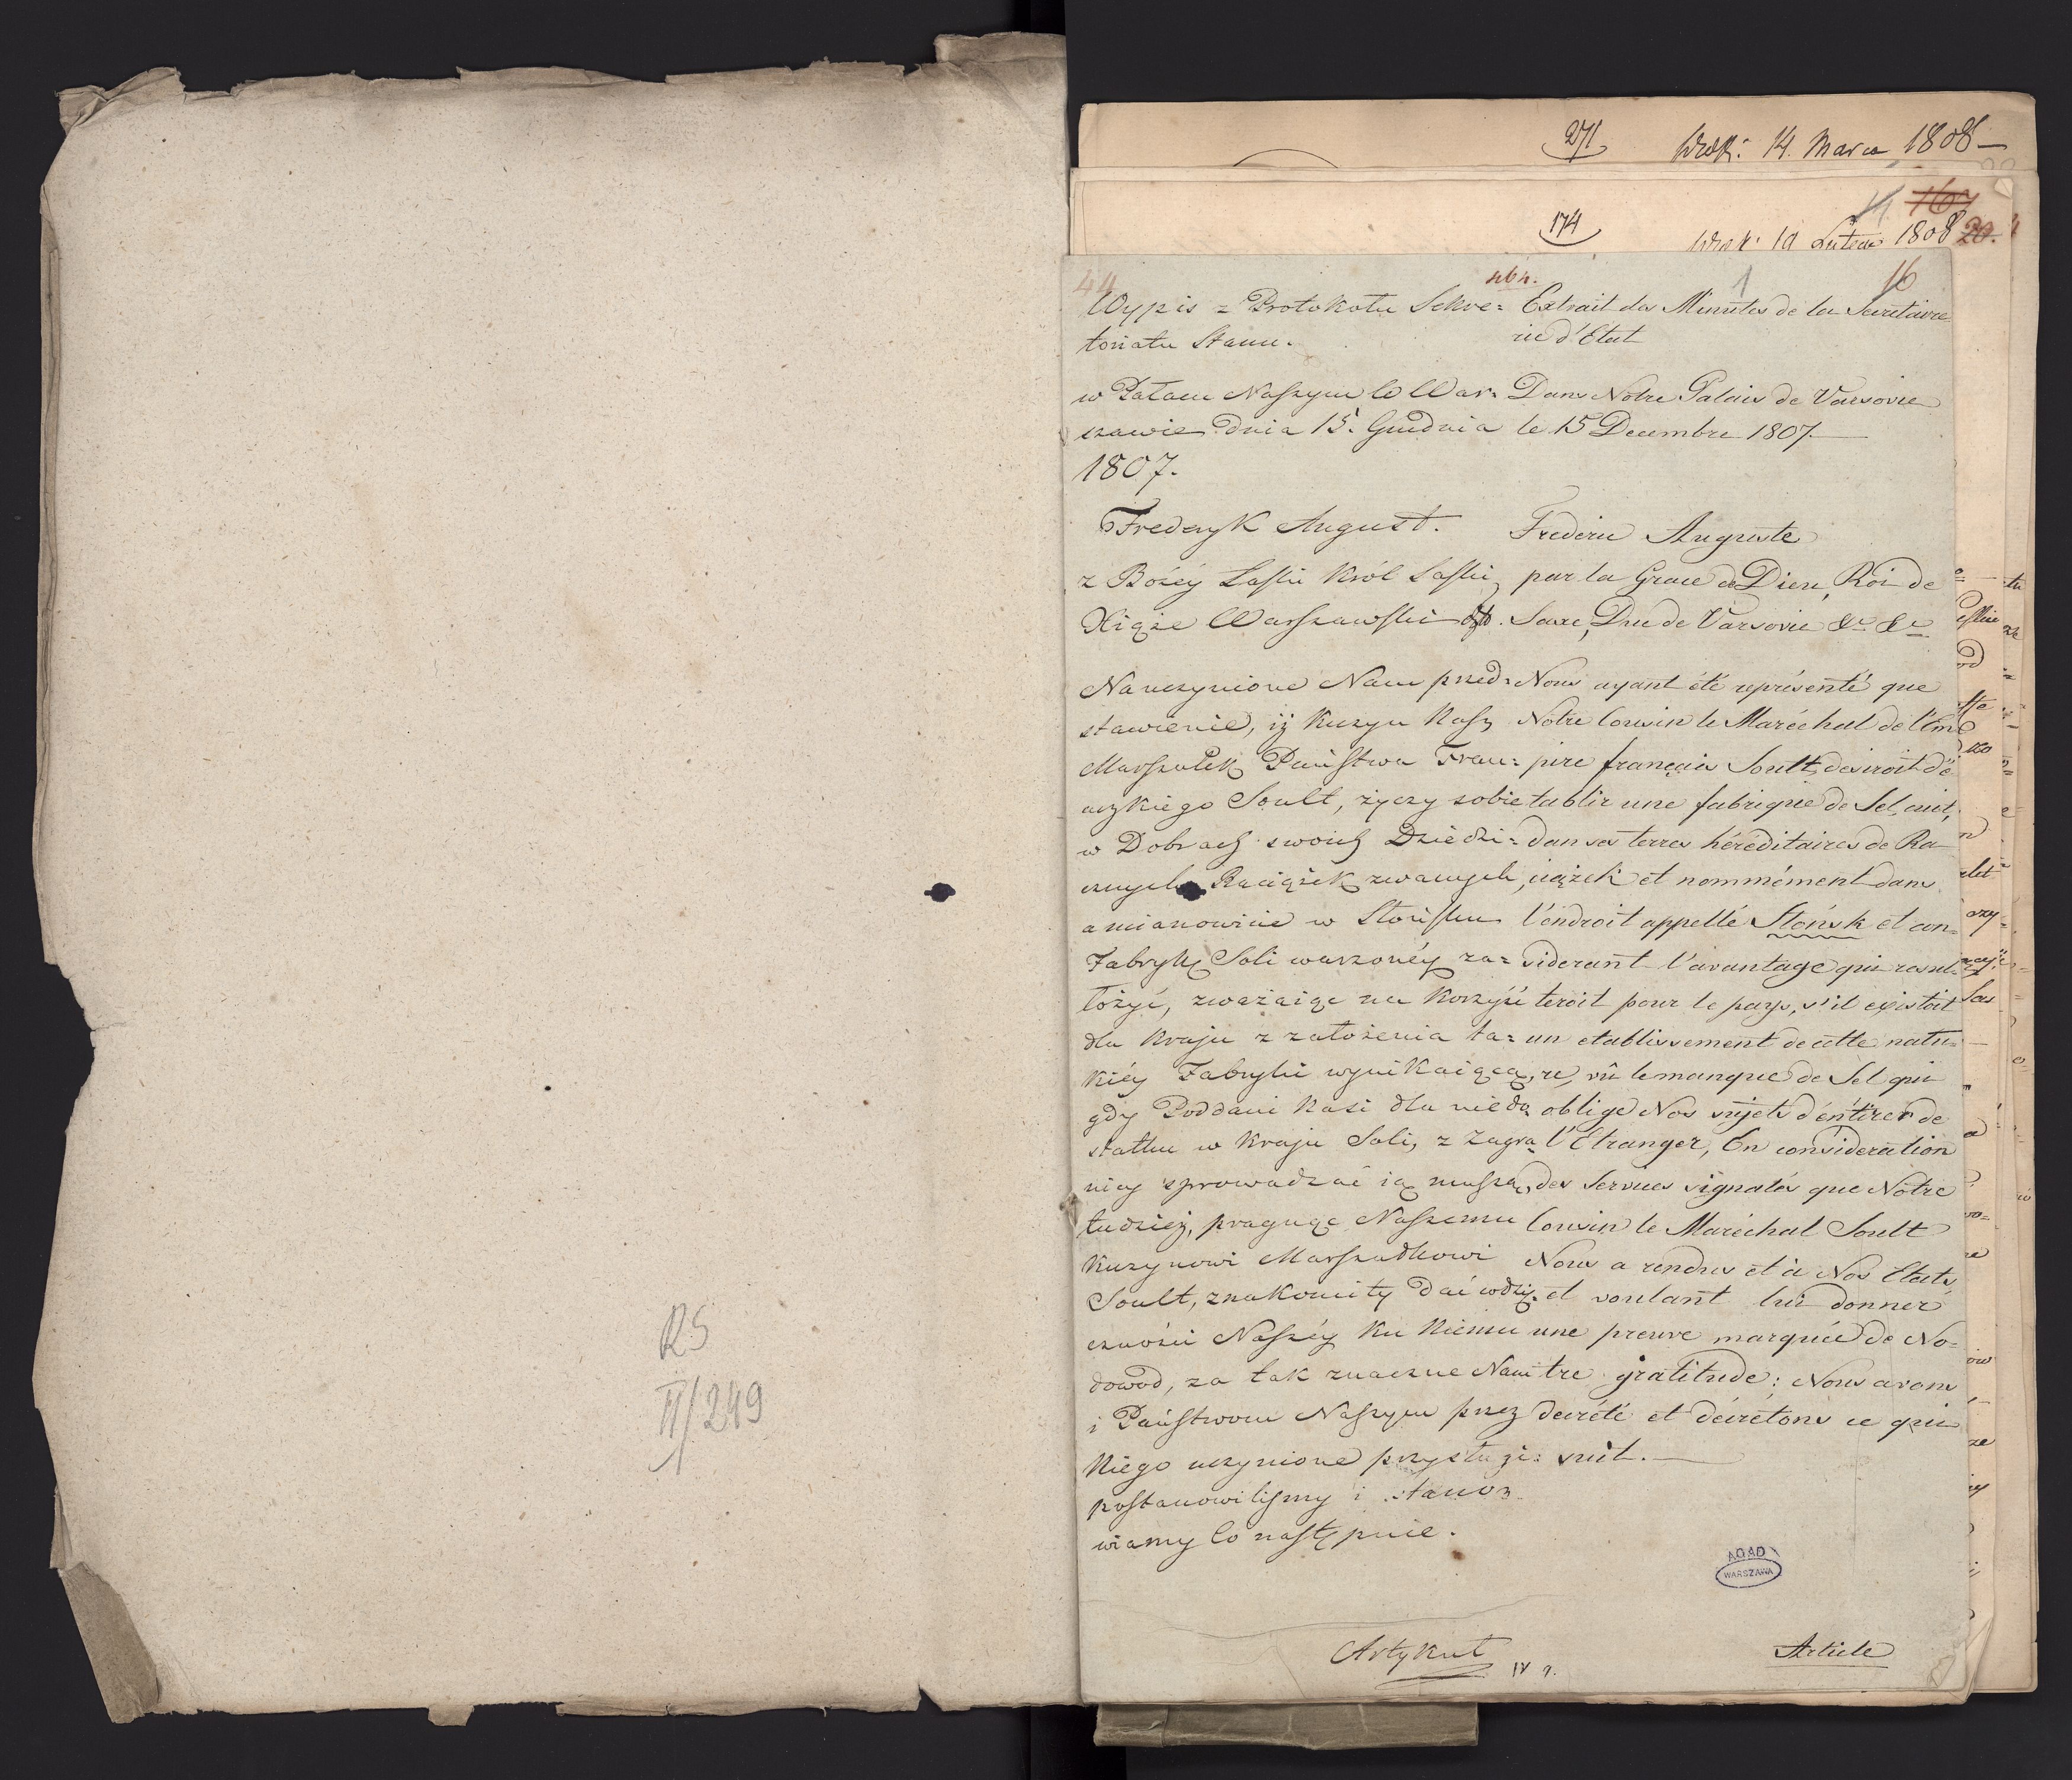 R5
II/249
271 Wrok: 14. Marca 1808
174
19 Lutego 1808 20.
44
464.
1
16
Wypis z Protokołu Sekre=
toriatu Stanu.
w Pałacu Naszym w War=
szawie dnia 15. Grudnia
1807.
Fryderyk August.
z Bożey Łaski Król Saski,
Xiąże Warszawski &&.
Na uczynione Nam przed=
stawienie, iż Kuzyn Nasz
Marszałek Państwa Fran=
cuzkiego Soult, życzy sobie
w Dobrach swoich Dziedzi=
cznych Raciążek zwanych,
a mianowicie w Słońsku
Fabrykę Soli warzonéy za=
łożyć, zważaiąc na korzyść
dla Kraju z założenia ta=
kiéy Fabryki wynikaiącą,
gdy Poddani Nasi dla niedo
statku w Kraju Soli, z Zagra
nicy sprowadzać ią muszą,
tudzież, pragnąc Naszemu
Kuzynowi Marszałkowi
Soult, znakomity dać wdzię=
czności Naszéy ku Niemu
dowod, za tak znaczne Nam
i Państwom Naszym przez
Niego uczynione przysługi:
postanowiliśmy i stano=
wiamy co następuie.
Artykuł
Extrait des Minutes de la Secretaire
rie d'Etat
Dans Notre Palais de Varsovie
le 15 Decembre 1807.
Frederic Auguste
par la Grace de Dieu, Roi de
Saxe, Duc de Varsovie &c &c
Nous ayant été représenté que
Notre Cousin le Maréchal de l'Em
pire français Soult, desiroit d'é
tablir une fabrique de Sel cuit,
dans ses terres héréditaires de Ra
ciążek et nommément dans
l'endroit appellé Słońsk et con=
siderant l'avantage qui resul=
teroit pour le pays, s'il existoit
un etablissement de cette natu=
re, vû le manque de Sel qui
oblige Nos sujets d'en tirer de
l'Etranger, En consideration
des Services signalés que Notre
Cousin le Maréchal Soult
Nous a rendus et à Nos Etats,
et voulant lui donner
une preuve marquée de No=
tre gratitude; Nous avons
decrété et décretons ce qui
suit.
AGAD
WARSZAWA
Article